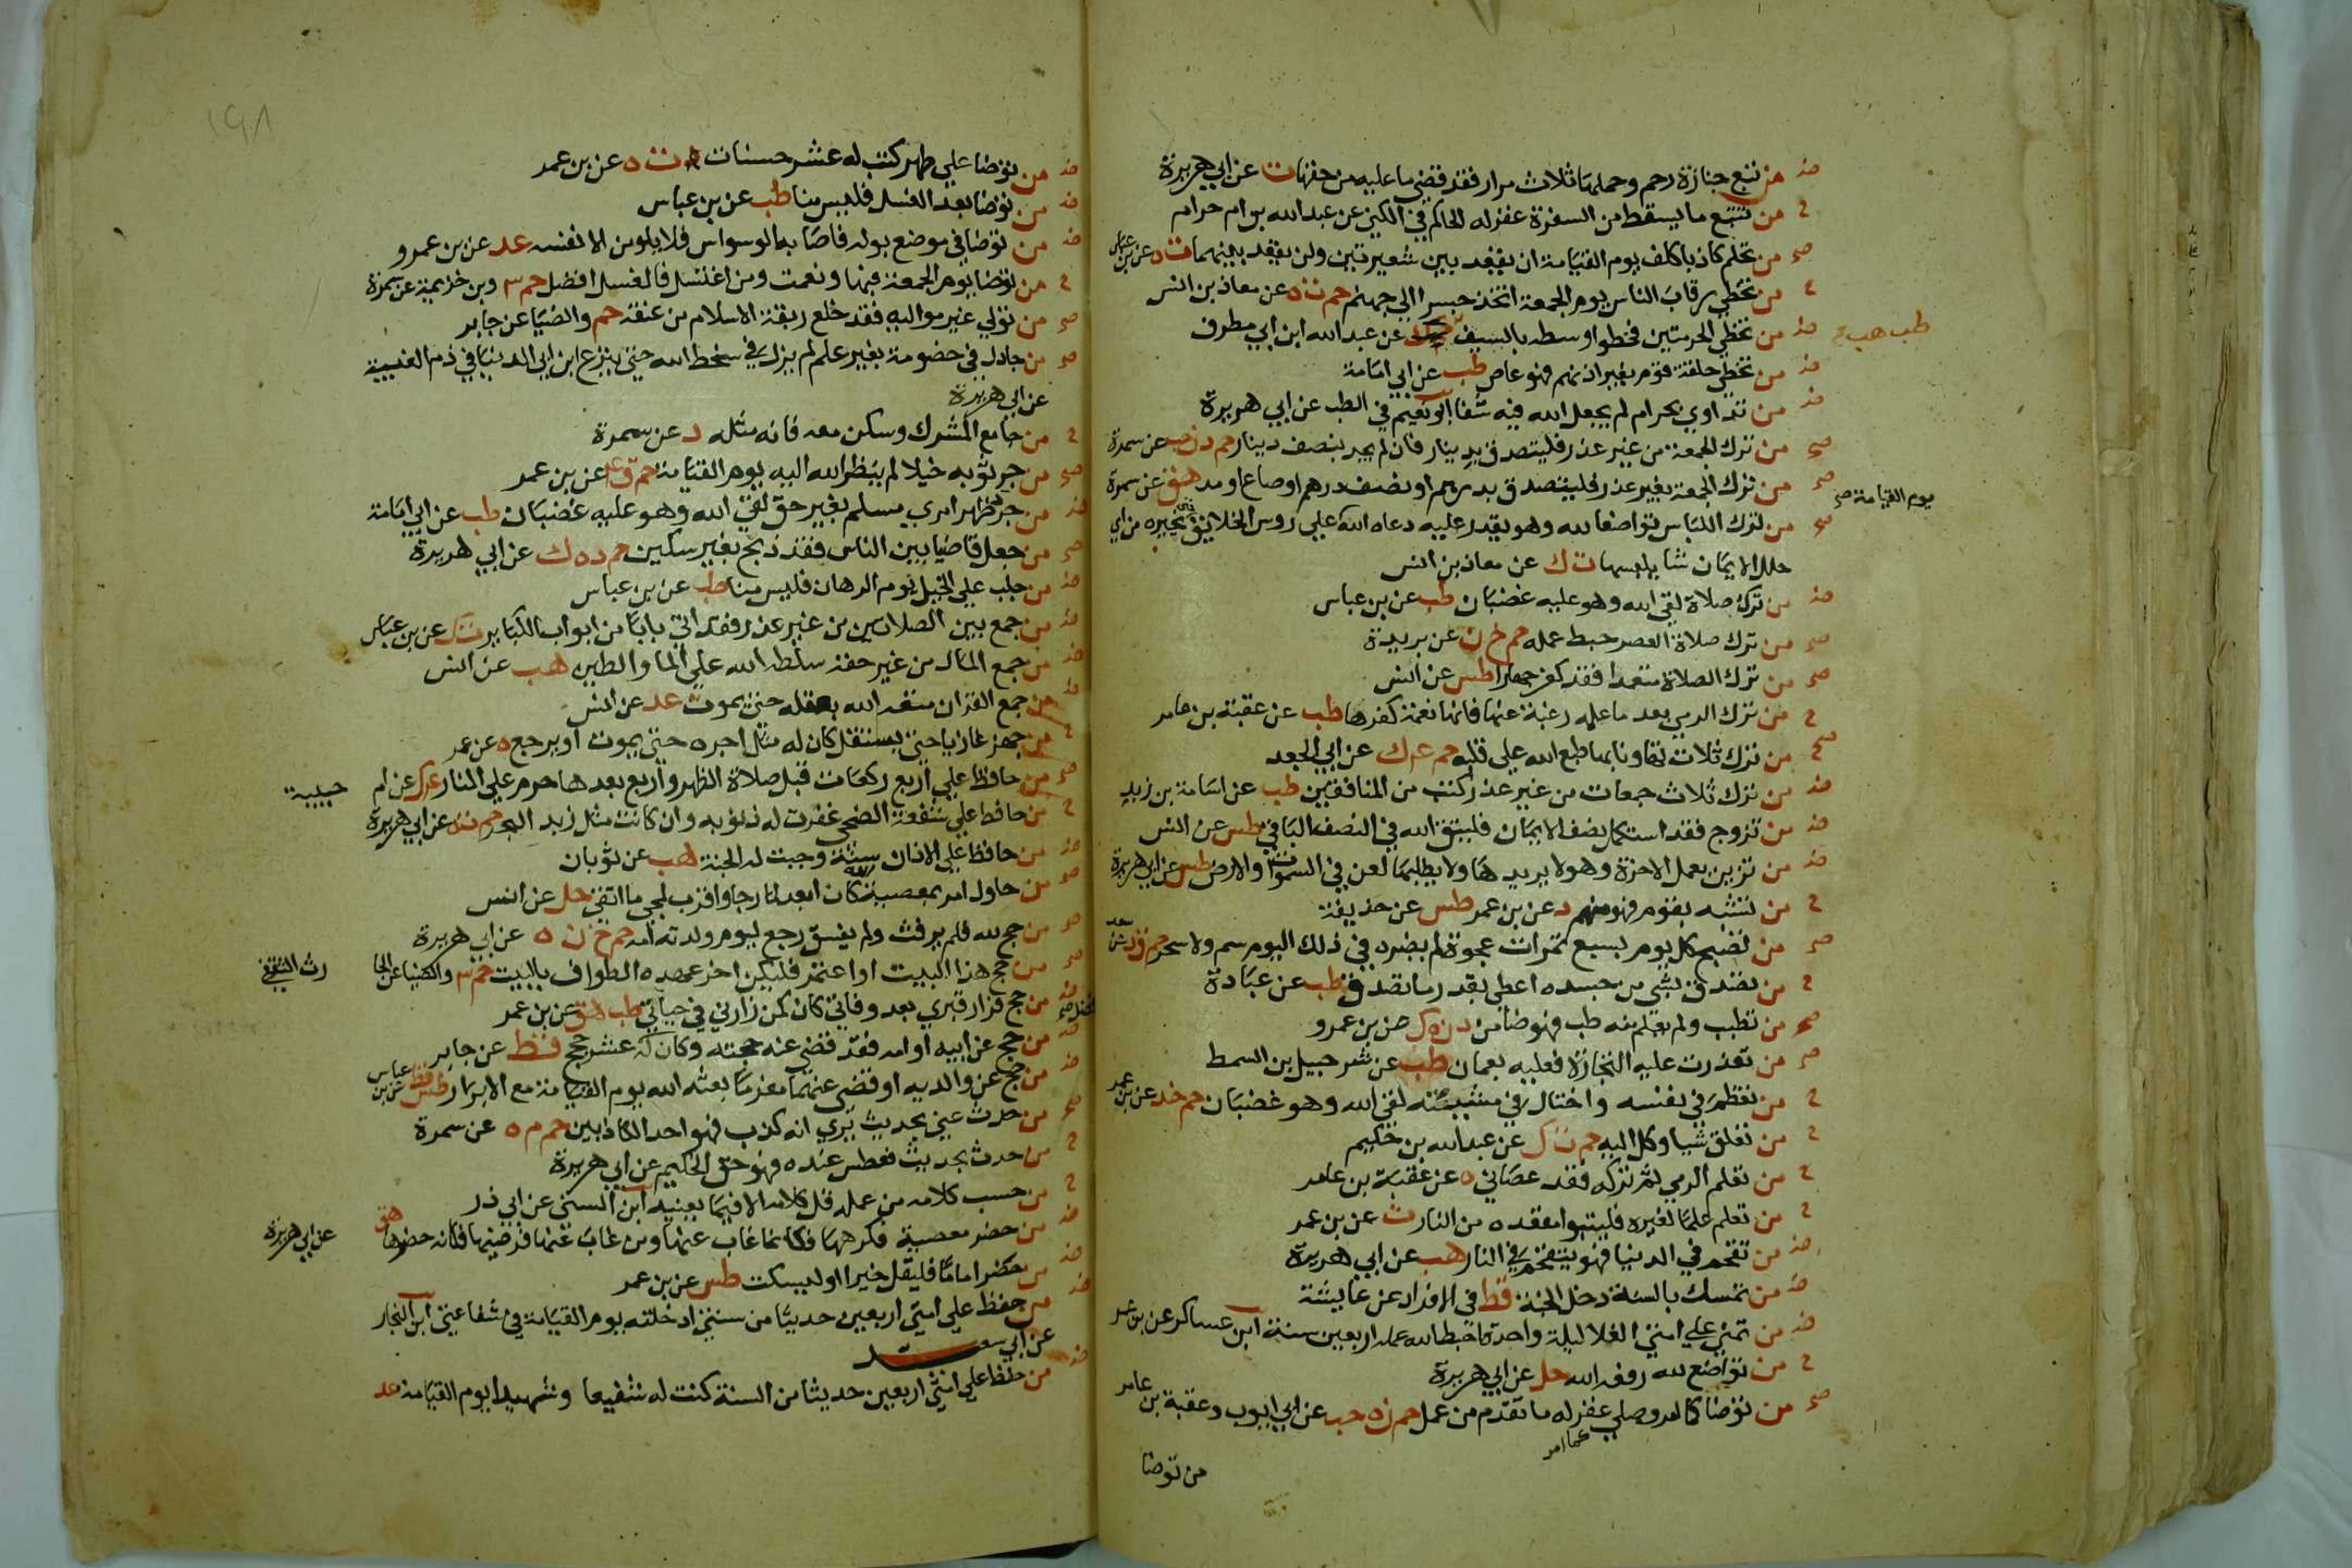 من تبع جنازة وحملها ثلاث مرار فقد قضي ما عليه من حقها ت عن ابي هريرة
من تتبع ما يسقط من السفرة غفر له الحاكم في الكني عن عبد الله بن ام حرام
من تحلم كاذبا كلف يوم القيامة ان يعقد بين شعيرتين ولن يعقد بينهما ت ه عن بن عباس
من تخطي رقاب الناس يوم الجمعة اتخذ جسرا الي جهنم حم ت ه عن معاذ بن انس
من تخطي الحرمتين فخطوا وسطه بالسيف عن عبد الله ابن ابي مطرف
طب هب
من تخطي حلقة قوم بغير اذنهم فهو عاص طب عن ابي امامة
من تداوي بحرام لم يجعل الله فيه شفا ابو نعيم في الطب عن ابي هريرة
من ترك الجمعة من غير عذر فليتصدق بدينار فان لم يجد بنصف دينار حم د ن حب عن سمرة
من ترك الجمعة بغير عذر فليتصدق بدرهم او نصف درهم او صاع او مد هق عن سمرة
يوم القيامة صح
من ترك اللباس تواضعا لله وهو يقدر عليه دعاه الله علي روس الخلايق حتي يخيره من اي
حلل الايمان شا يلبسها ت ك عن معاذ بن انس
من ترك صلاة لقي الله وهو عليه غضبان طب عن بن عباس
من ترك صلاة العصر حبط عمله حم خ ن عن بريدة
من ترك الصلاة متعمدا فقد كفر جهارا طس عن انس
من ترك الرمي بعد ما علمه رغبة عنها فانها نعمة كفرها طب عن عقبة بن عامر
من ترك ثلاث تهاونا بها طبع الله علي قلبه حم ع ك عن ابي الجعد
من ترك ثلاث جمعات من غير عذر كتب من المنافقين طب عن اسامة بن زيد
من تزوج فقد استكمل نصف الايمان فليتق الله في النصف الباقي طس عن انس
من تزين بعمل الاخرة وهو لا يريدها ولا يطلبها لعن في السموات والارض طس عن ابي هريرة
من تشبه بقوم فهو منهم د عن بن عمر طس عن حذيفة
من تصبح كل يوم بسبع تمرات عجوة لم يضره في ذلك اليوم سم ولا سحر حم ق د عن سعد
من تصدق بشي من جسده اعطي بقدر ما تصدق طب عن عبادة
من تطبب ولم يعلم منه طب فهو ضامن د ن ه ك عن بن عمرو
من تعذرت عليه التجارة فعليه بعمان طب عن شرحبيل بن السمط
من تعظم في نفسه واختال في مشيته لقي الله وهو غضبان حم خد عن بن عمر
من تعلق شيا وكل اليه حم ت ك عن عبد الله بن حكيم
من تعلم الرمي ثم تركه فقد عصاني ه عن عقبة بن عامر
من تعلم علما لغيره فليتبوا مقعده من النار ت عن بن عمر
من تقحم في الدنيا فهو يتقحم في النار هب عن ابي هريرة
من تمسك بالسنة دخل الجنة قط في الافراد عن عايشة
من تمني علي امتي الغلا ليلة واحدة احبط الله عمله اربعين سنة ابن عساكر عن بن عمر
من تواضع لله رفعه الله حل عن ابي هريرة
من توضا كما امر وصلي غفر له ما تقدم من عمل حم ن ه حب عن ابي ايوب وعقبة بن عامر
كما امر
من توضا
١٩٨
من توضا علي طهر كتب له عشر حسنات د ت ه عن بن عمر
من توضا بعد الغسل فليس منا طب عن بن عباس
من توضا في موضع بوله فاصابه الوسواس فلا يلومن الا نفسه عد عن بن عمرو
من توضا يوم الجمعة فبها ونعمت ومن اغتسل فالغسل افضل حم ٣ وبن خزيمة عن سمرة
من تولي غير مواليه فقد خلع ربقة الاسلام من عنقه حم والضيا عن جابر
من جادل في خصومة بغير علم لم يزل في سخط الله حتي ينزع ابن ابي الدنيا في ذم الغيبة
عن ابي هريرة
من جامع المشرك وسكن معه فانه مثله د عن سمرة
من جر ثوبه خيلا لم ينظر الله اليه يوم القيامة حم ق ع عن بن عمر
من جرد ظهر امري مسلم بغير حق لقي الله وهو عليه غضبان طب عن ابي امامة
من جعل قاضيا بين الناس فقد ذبح بغير سكين حم د ه ك عن ابي هريرة
من جلب علي الخيل يوم الرهان فليس منا طب عن بن عباس
من جمع بين الصلاتين من غير عذر فقد اتي بابا من ابواب الكباير ت ك عن بن عباس
من جمع المال من غير حقه سلطه الله علي الما والطين هب عن انس
من جمع القران متعه الله بعقله حتي يموت عد عن انس
من جهز غازيا حتي يستقل كان له مثل اجره حتي يموت او يرجع ه عن عمر
من حافظ علي اربع ركعات قبل صلاة الظهر واربع بعدها حرم علي النار ع ك عن ام
حبيبة
من حافظ علي شفعة الضحي غفرت له ذنوبه وان كانت مثل زبد البحر حم ت ه عن ابي هريرة
من حافظ علي الاذان سنة وجبت له الجنة هب عن ثوبان
من حاول امر بمعصية الله كان ابعد لما رجا واقرب لمجي ما اتقي حل عن انس
من حج لله فلم يرفث ولم يفسق رجع ليوم ولدته امه حم خ ن ه عن ابي هريرة
من حج هذا البيت او اعتمر فليكن اخر عهده الطواف بالبيت حم ٣ والضيا عن الحا
رث الثقفي
من حج فزار قبري بعد وفاتي كان كمن زارني في حياتي طب هق عن بن عمر
من حج عن ابيه او امه فقد قضي عنه حجته وكان له عشر حجج قط عن جابر
من حج عن والديه او قضي عنهما مغرما بعثه الله يوم القيامة مع الابرار طس قط عن بن عباس
من حدث عني بحديث يري انه كذب فهو احد الكاذبين حم م ه عن سمرة
من حدث بحديث فعطس عنده فهو حق الحكيم عن ابي هريرة
من حسب كلامه من عمله قل كلامه الا فيما يعنيه ابن السني عن ابي ذر
من حضر معصية فكرهها فكانما غاب عنها ومن غاب عنها فرضيها فكانه حضرها هق
عن ابي هريرة
من حضر اماما فليقل خيرا او ليسكت طس عن بن عمر
من حفظ علي امتي اربعين حديثا من سنتي ادخلته يوم القيامة في شفاعتي ابن النجار
عن ابي سعيد
من حفظ علي امتي اربعين حديثا من السنة كنت له شفيعا وشهيدا يوم القيامة عد